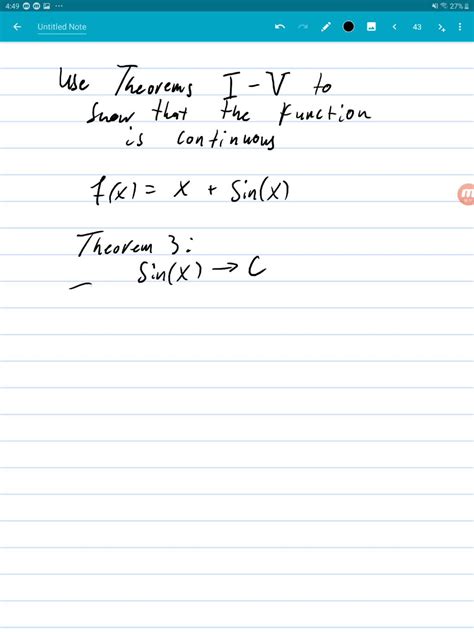 4:49
27%
Untitled Note
43
Use Theorems I - V to
show that the function
is continuous
f(x) = x + Sin(x)
Theorem 3:
Sin(x) → C